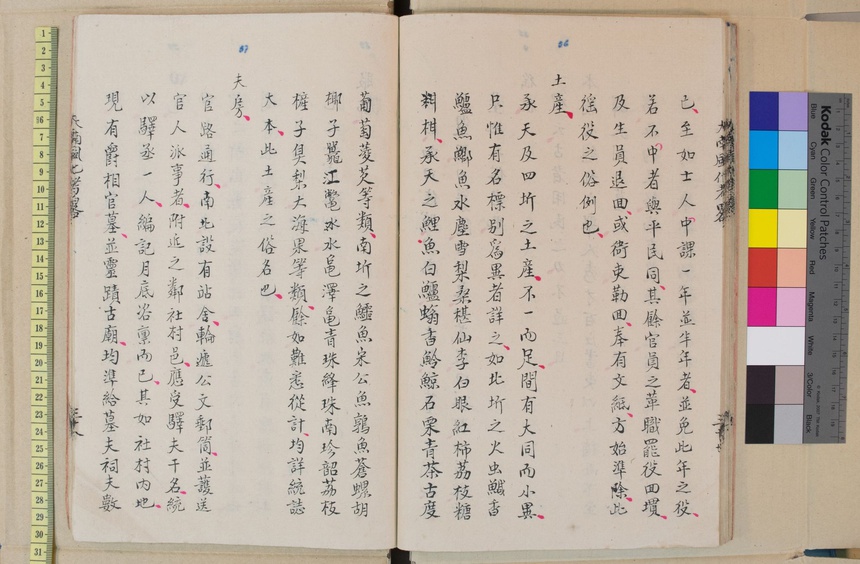 已至如士人中課一年並半年者並免此年之役
若不中者與平民同其餘官員之革職罷役回墳
及生員退回或衙吏勒回奉有文紙方始準除此
徭役之俗例也
土產
承天及四圻之土產不一而足間有大同而小異
只惟有名標別爲異者詳之如北圻之火虫鱵香
鱸魚鄉魚水塵雪梨桑椹仙李白眼紅柿荔枝糖
料柑承天之鯉魚白鱸螉杏鯨石栗青茶古度
葡萄菱芡等類南圻之鱷魚宋公魚鶉魚蒼螺胡
椰子鼊江鱉水水黽澤黽青珠絳珠南珍韶荔枝
榷子具梨大海果等類餘如難悉從計均詳統誌
大本此土產之俗名也
夫房
官路通行南北設有站舍輪遞公文郵筒並護送
官人派事者附近之鄰社村邑應受驛夫干名統
以驛丞一人編記月底咨稟而已其如社村內地
現有爵相官墓並靈蹟古廟均準給墓夫祠夫數
27
26
Kodak Color Control Patches
Blue
Cyan
Green
Yellow
Red
Magenta
White
3/Color
Black